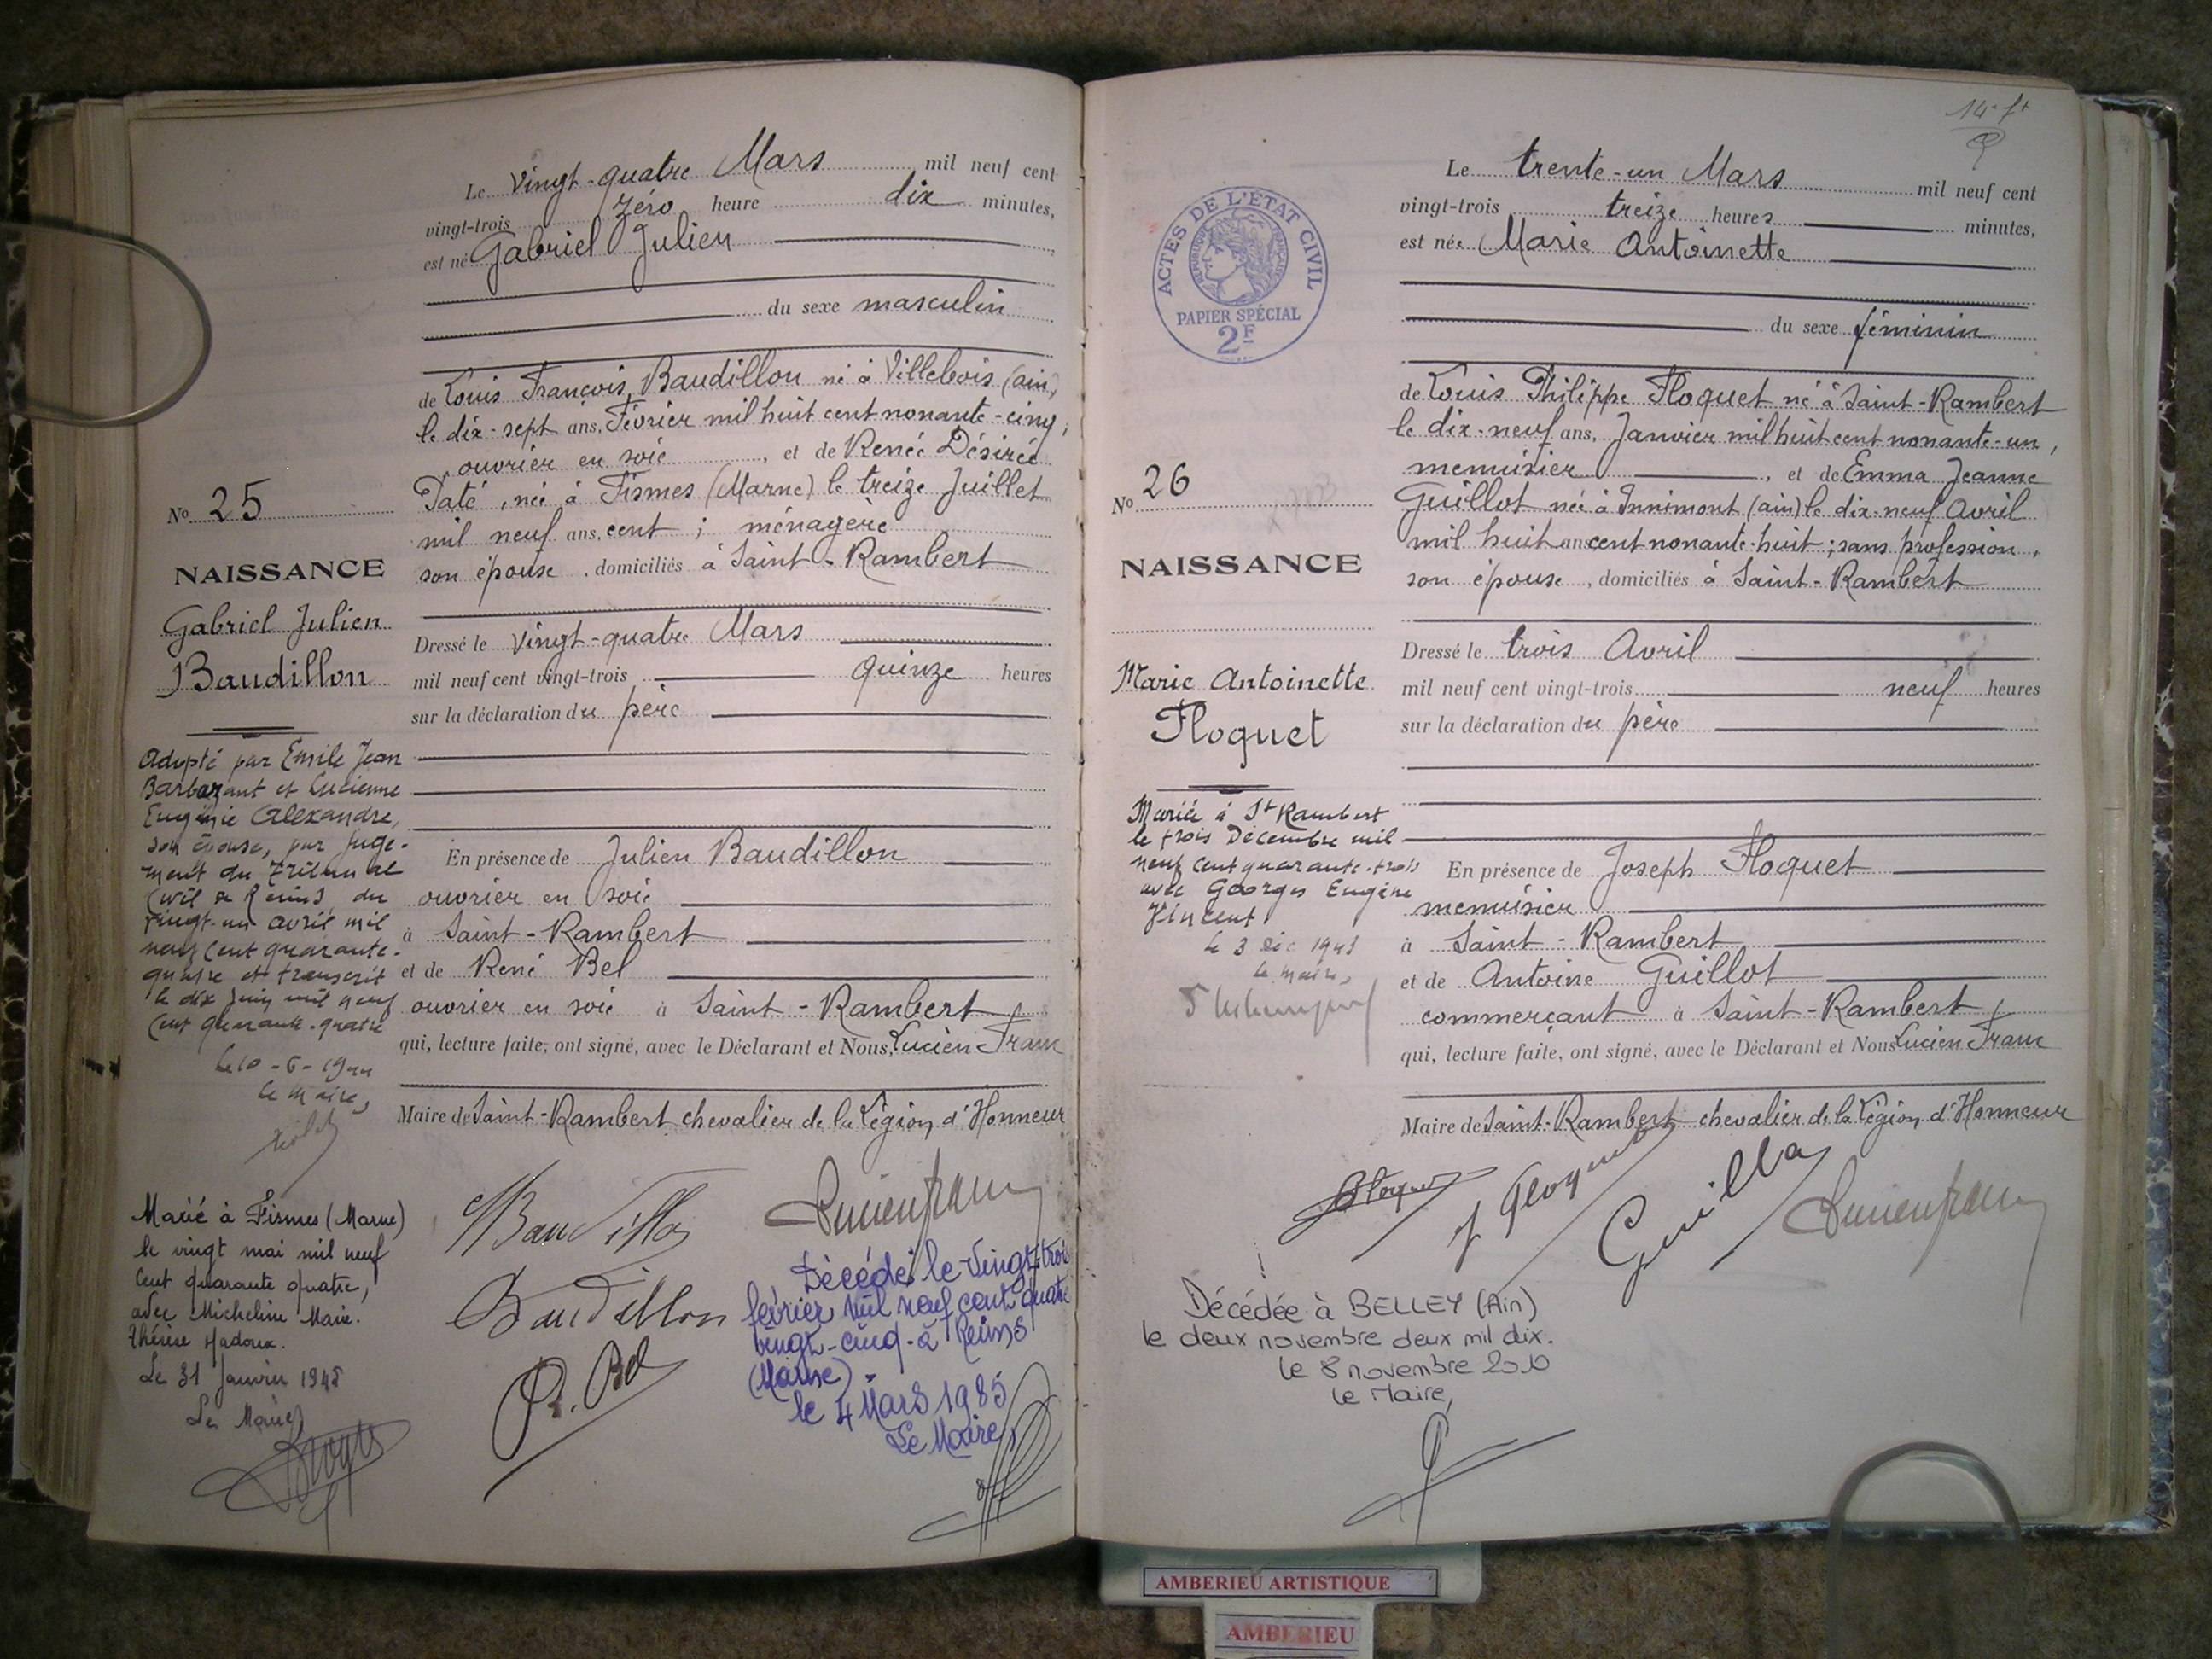 Le vingt-quatre Mars mil neuf cent
vingt-trois zéro heure dix minutes,
est né Gabriel Julien
du sexe masculin
de Louis François Baudillon né à Villebois (ain)
le dix-sept ans, Février mil huit cent nonante-cinq,
ouvrier en soie, et de Renée Désirée
Paté, née à Fismes (Marne) le treize Juillet
mil neuf ans, cent ; ménagère
son épouse, domiciliés à Saint-Rambert
Dressé le vingt-quatre Mars
mil neuf cent vingt-trois quinze heures
sur la déclaration du père
En présence de Julien Baudillon
ouvrier en soie
à Saint-Rambert
et de René Bel
ouvrier en soie à Saint-Rambert
qui, lecture faite, ont signé, avec le Déclarant et Nous, Lucien Franc
Maire de Saint-Rambert chevalier de la Légion d'Honneur
Baudillon
Lucien franc
Baudillon
R. Bel
Décédé le vingt-trois
février mil neuf cent quatre
vingt-cinq à Reims
(Marne).
le 4 Mars 1985
Le Maire,
No 25
NAISSANCE
Gabriel Julien
Baudillon
Adopté par Emile Jean
Barbazant et Lucienne
Eugénie Alexandre,
son épouse, par juge-
ment du Tribunal
Civil de Reims du
vingt-un avril mil
neuf cent quarante-
quatre et transcrit
le dix juin mil neuf
cent quarante-quatre
Le 10-6-1944
Le Maire,
Marié à Fismes (Marne)
le vingt mai mil neuf
cent quarante quatre,
avec Micheline Marie
Thérèse Hadoux.
Le 31 Janvier 1945
Le Maire
14e ft
Le trente-un Mars mil neuf cent
vingt-trois treize heures minutes,
est née Marie Antoinette
du sexe féminin
de Louis Philippe Floquet né à Saint-Rambert
le dix-neuf ans, Janvier mil huit cent nonante-un,
menuisier, et de Emma Jeanne
Guillot née à Innimont (ain) le dix-neuf Avril
mil huit ans cent nonante-huit ; sans profession,
son épouse, domiciliés à Saint-Rambert
Dressé le trois Avril
mil neuf cent vingt-trois neuf heures
sur la déclaration du père
En présence de Joseph Floquet
menuisier
à Saint-Rambert
et de Antoine Guillot
commerçant à Saint-Rambert
qui, lecture faite, ont signé, avec le Déclarant et Nous Lucien Franc
Maire de Saint-Rambert chevalier de la Légion d'Honneur
Floquet
J Floquet
Guillot
Lucien franc
ACTES DE L'ETAT CIVIL
REPUBLIQUE FRANÇAISE
PAPIER SPÉCIAL
2F
No 26
NAISSANCE
Marie Antoinette
Floquet
Mariée à St Rambert
le trois Décembre mil
neuf cent quarante-trois
avec Georges Eugène
Vincent
Le 3 Déc 1943
Le Maire,
Décédée à BELLEY (Ain)
le deux novembre deux mil dix.
Le 8 novembre 2010
Le Maire,
AMBERIEU ARTISTIQUE
AMBERIEU